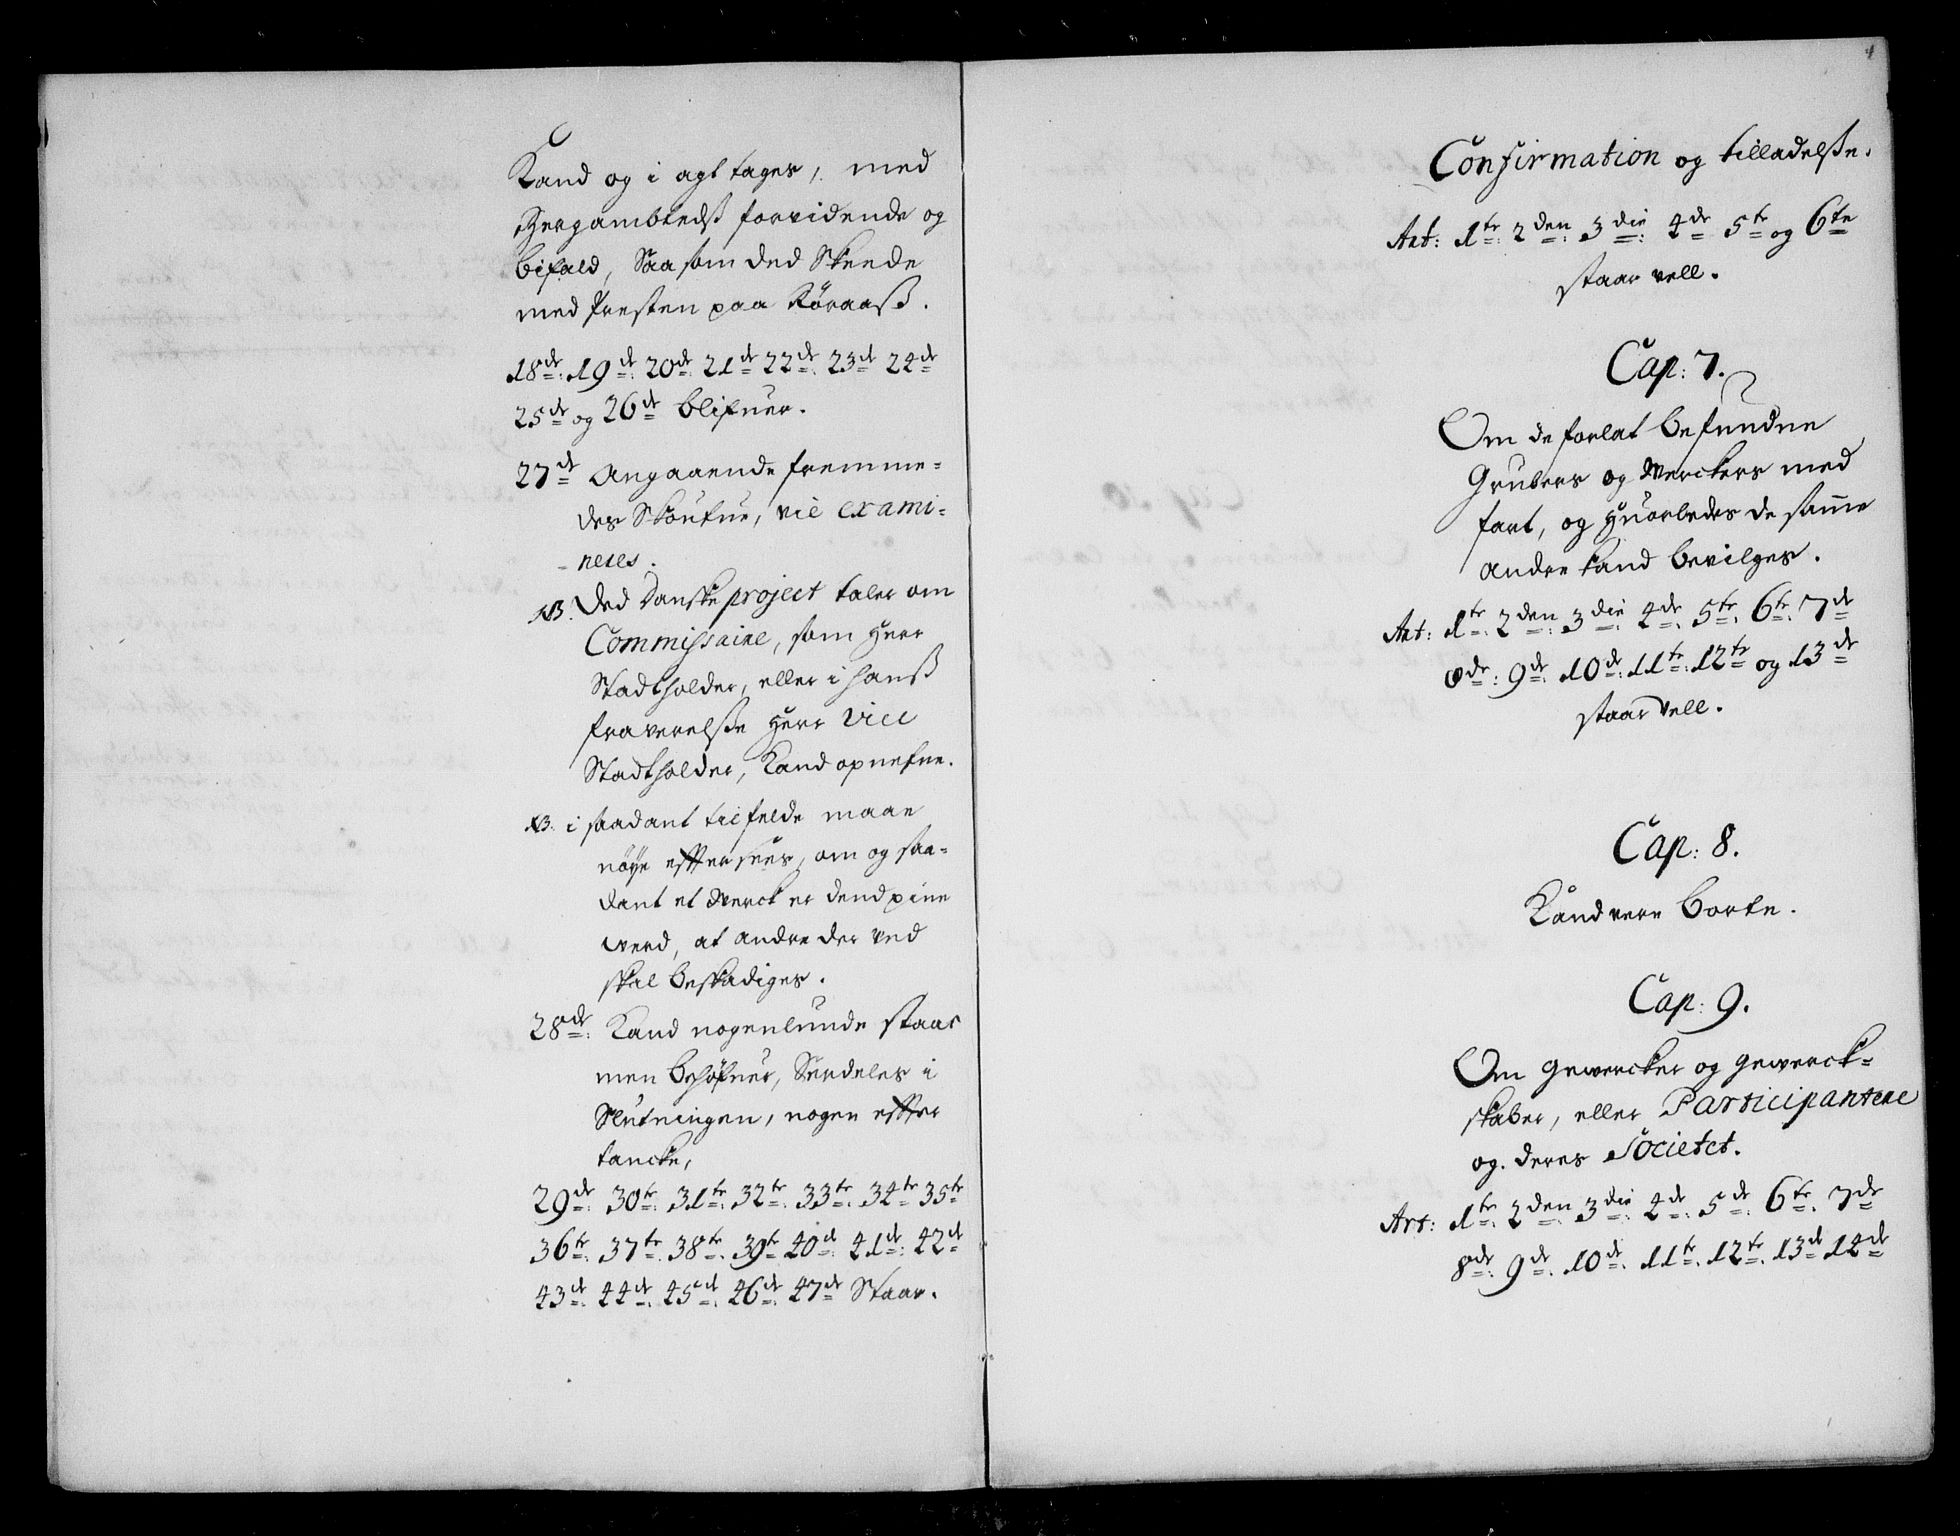 Kand og i agt tages, med
Bergambtedß forvidende og
bifald, Saa som ded Skeede
med Presten paa Röraaß.
18de: 19de: 20de: 21de 22de: 23de 24de
25de og 26de blifuer.
27de Angaaende fremme-
des Skoufue, vil exami-
-neres.
NB. Ded Danske project taler om
Commissaire, som Herr
Stadtholder, eller i hanß
fraverelße Herr Vice
Stadtholder, Kand opnefne.
NB: i saadant tilfelde maae
nöye efftersees, om og saa-
dant et Werck er dend pine
werd, at andre der ved
skal beskadiges.
28de: Kand nogenlunde staar
men behöfuer, Serdeles i
Slutningen, nogen effter
tancke,
29de: 30te: 31te: 32te: 33te: 34te 35te
36te: 37te: 38te: 39te 40de: 41de: 42de
43de: 44de: 45de: 46de: 47de Staar.
4
Confirmation og tilladelße.
Art: 1te: 2den: 3die: 4de 5te og 6te
staar vell.
Cap: 7.
Om de forlat befundne
Gruber og Wercker med
fart, og Huorledes de samme
andre kand bevilges.
Art: 1te: 2den: 3die: 4de: 5te: 6te: 7de
8de: 9de: 10de: 11te: 12te og 13de
staar vell.
Cap: 8.
Kand vere borte.
Cap: 9.
Om Gewercker og gewerck-
skaber, eller Participantere
og deres Societet.
Art: 1te: 2den: 3die: 4de: 5de: 6te: 7de
8de: 9de: 10de: 11te: 12te: 13de 14de